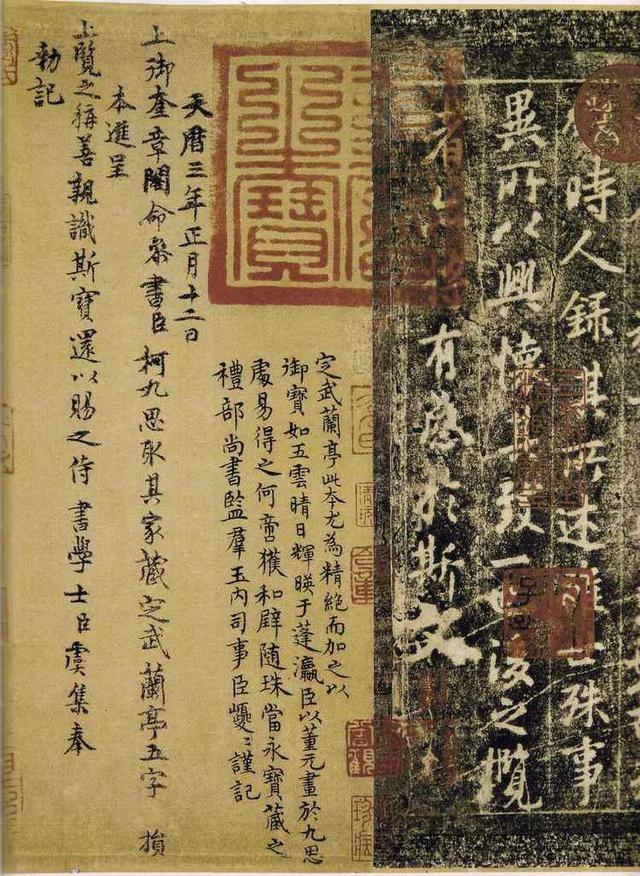 時人録其所述雖世殊事
異所以興懷其致一也後之攬
者亦將有感於斯文
定武蘭亭此本尤為精絕而加之以
御寶如五雲晴日輝暎于蓬瀛臣以董元畫於九思
處易得之何啻獲和璧隨珠當永寶藏之
禮部尚書監羣玉内司事臣巙〻謹記
天曆三年正月十二日
上御奎章閣命叅書臣柯九思取其家藏定武蘭亭五字損
本進呈
上覽之稱善親識斯寶還以賜之侍書學士臣虞集奉
勑記